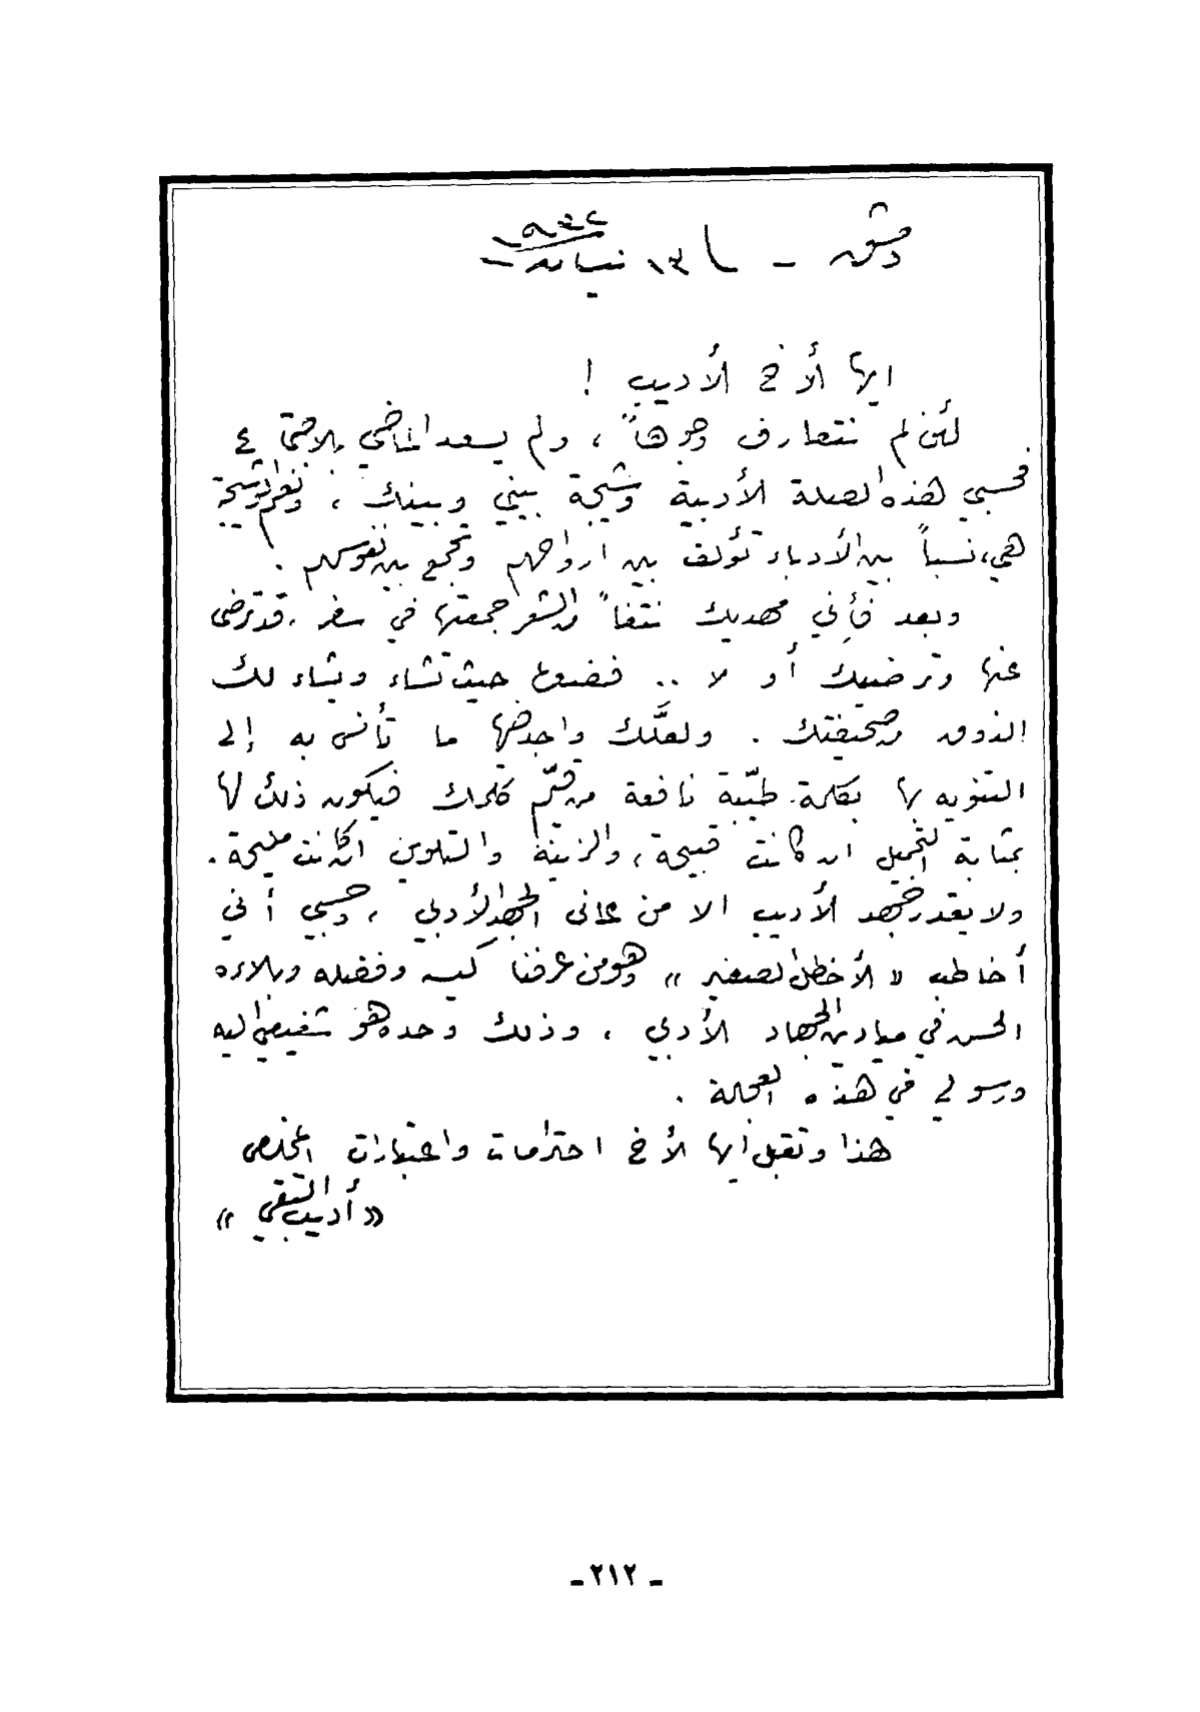 دمشق - ١٣ نيسان ١٩٣٢
ايها الأخ الأديب !
لئن لم نتعارف وجوهاً ، ولم يسعد الماضي بالاجتماع
فحسبي هذه الصلة الأدبية وشيجة بيني وبينك ، ونعم الوشيجة
هي، نسباً بين الأدباء تؤلف بين ارواحهم وتجمع بين نفوسهم .
وبعد فأني مهديك نتفاً من الشعر جمعتها في سفر، قد ترضى
عنها وترضيك أو لا .. فضعها حيث تشاء ويشاء لك
الذوق من صحيفتك . ولعلَّك واجد فيها ما تأنس به إلى
التنويه بها بكلمة طيّبة نافعة من قيّم كلامك فيكون ذلك لها
بمثابة التجميل ان كانت قبيحة، والزينة والتلوين ان كانت مليحة.
ولا يقدر جهد الأديب الا من عانى الجهد الأدبي ، وحسبي أني
أخاطب « الأخطل الصغير » وهو من عرفنا أدبه وفضله وبلاءه
الحسن في ميادين الجهاد الأدبي ، وذلك وحده هو شفيعي اليه
ورسولي في هذه العجالة .
هذا وتقبل ايها الأخ احترامات واعتبارات المخلص
« أديب التقي »
- ٢١٢ -